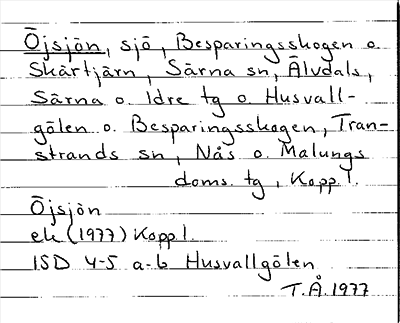 Öjsjön, sjö, Besparingsskogen o.
Skärtjärn, Särna sn, Älvdals,
Särna o. Idre tg o. Husvall-
gölen o. Besparingsskogen, Tran-
strands sn, Nås o. Malungs
doms. tg, Kopp l.
Öjsjön
ek (1977) Kopp l.
15D 4-5 a-b Husvallgölen
T.Å. 1977